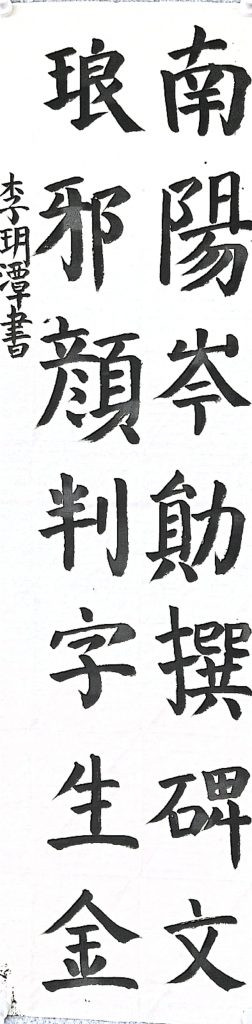 南陽岑勛撰碑文
琅邪顔判字生金
李玥潭書